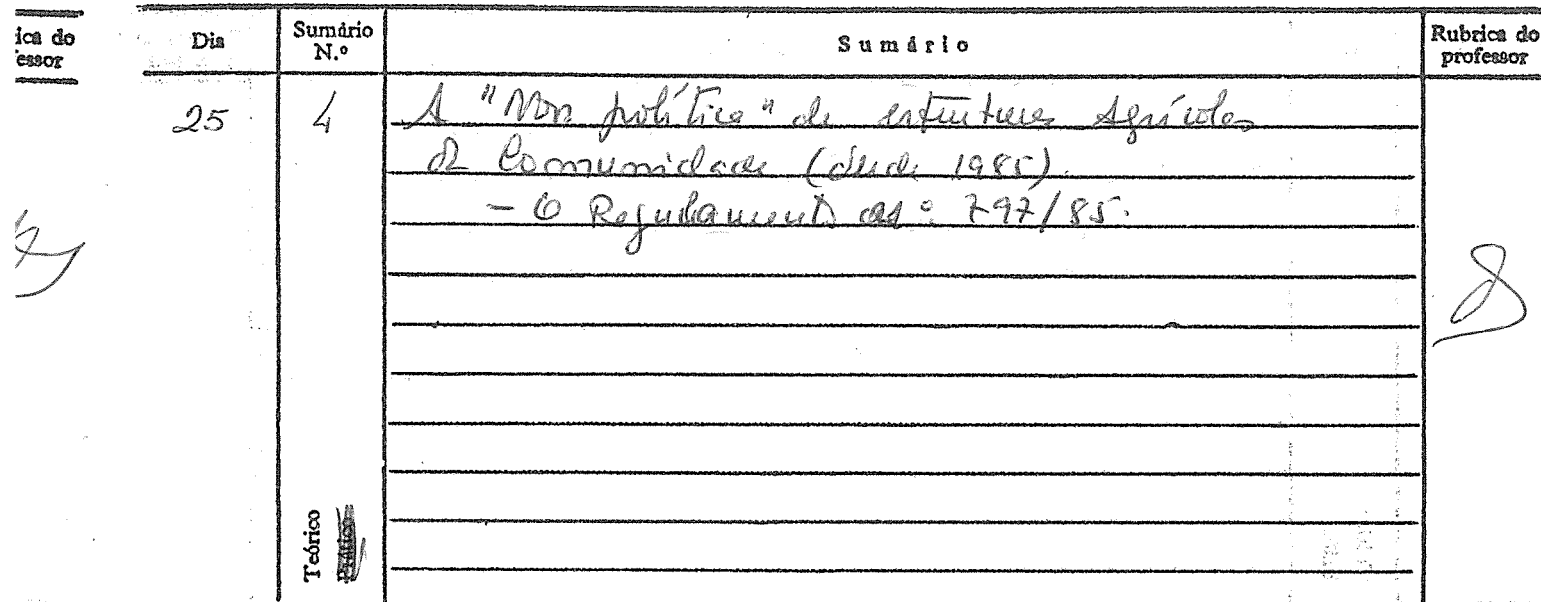 ica do
essor
Dia
Sumário
N.º
Sumário
Rubrica do
professor
25
4
A " política" de estruturas Agrícolas
da Comunidade (desde 1985).
- O Regulamento nº 797/85.
Teórico
Prático